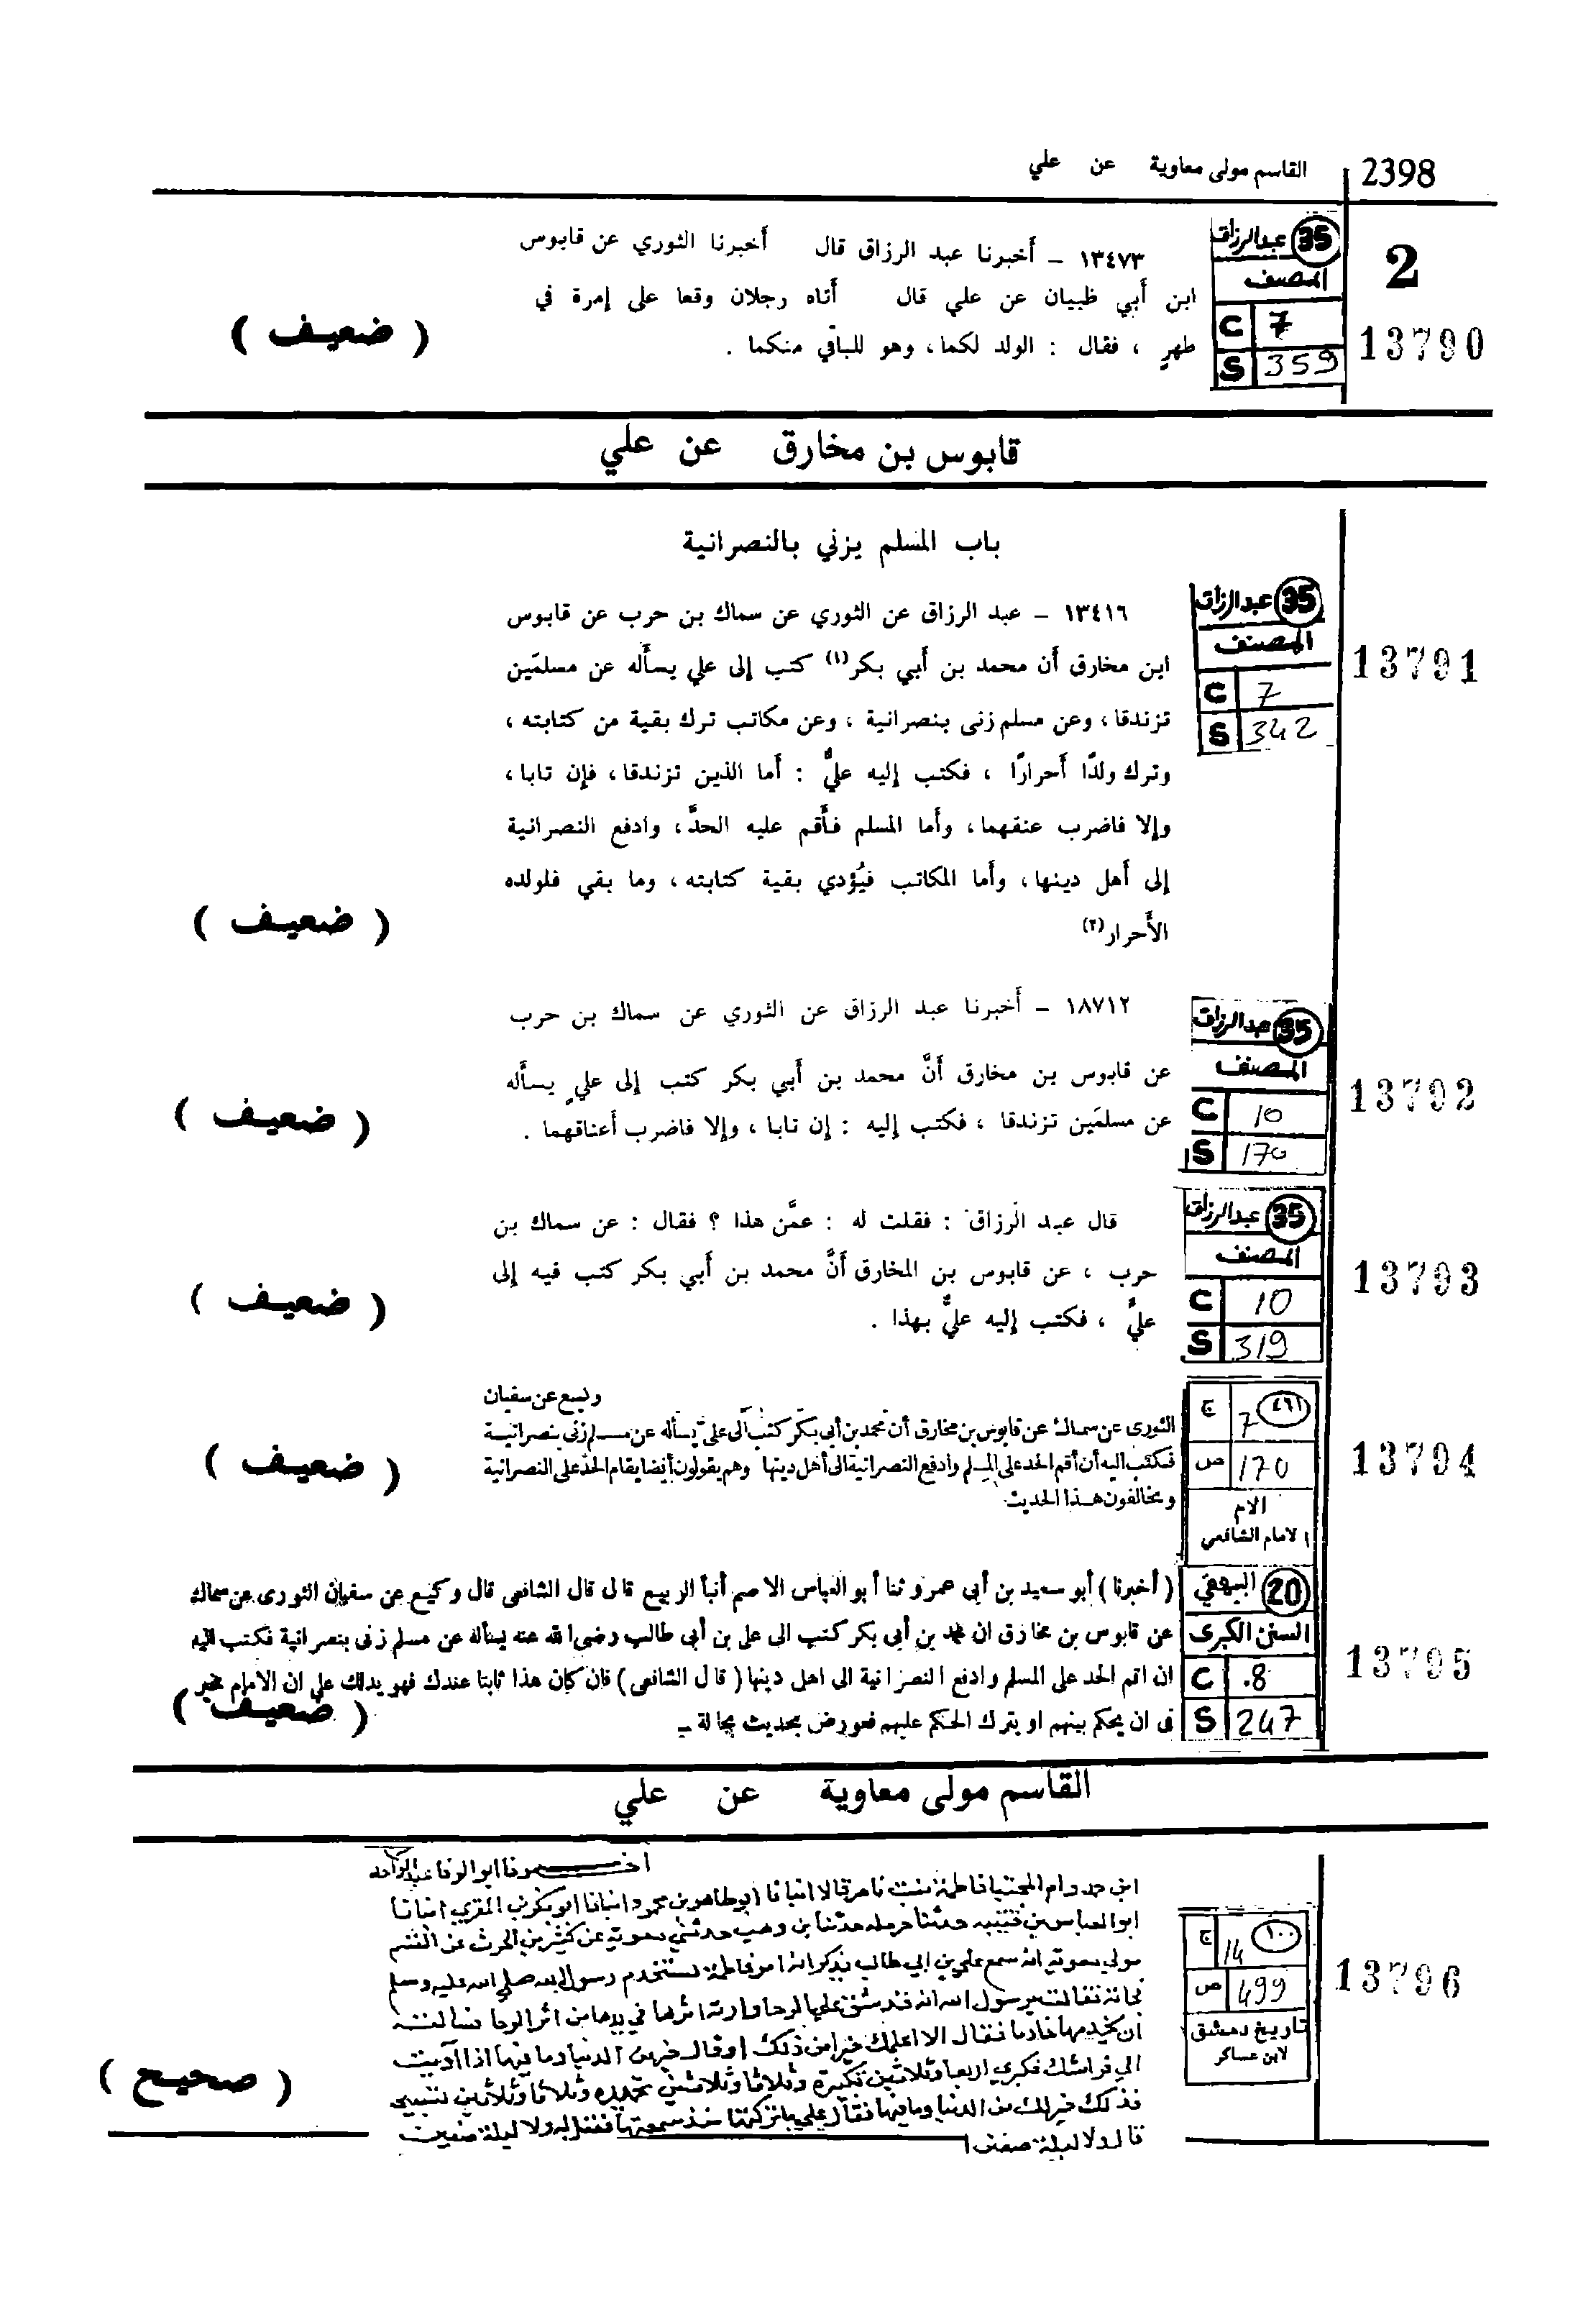 2398
القاسم مولى معاوية عن علي
2
13790
35 عبدالرزاق
المصنف
C 7
S 359
١٣٤٧٣ – أخبرنا عبد الرزاق قال أخبرنا الثوري عن قابوس
ابن أبي ظبيان عن علي قال أتاه رجلان وقعا على إمرة في
طهرٍ ، فقال : الولد لكما، وهو للباقي منكما .
( ضعيف )
قابوس بن مخارق عن علي
باب المسلم يزني بالنصرانية
13791
35 عبدالرزاق
المصنف
C 7
S 342
١٣٤١٦ – عبد الرزاق عن الثوري عن سماك بن حرب عن قابوس
ابن مخارق أن محمد بن أبي بكر(١) كتب إلى علي يسأله عن مسلمَين
تزندقا، وعن مسلم زنى بنصرانية ، وعن مكاتب ترك بقية من كتابته ،
وترك ولدًا أحرارًا ، فكتب إليه عليٌّ : أما الذين تزندقا، فإن تابا،
وإلا فاضرب عنقهما، وأما المسلم فأقم عليه الحدَّ، وادفع النصرانية
إلى أهل دينها، وأما المكاتب فيُؤدي بقية كتابته، وما بقي فلولده
الأحرار(٢)
( ضعيف )
13792
35 عبدالرزاق
المصنف
C 10
S 170
١٨٧١٢ – أخبرنا عبد الرزاق عن الثوري عن سماك بن حرب
عن قابوس بن مخارق أنَّ محمد بن أبي بكر كتب إلى عليٍ يسأله
عن مسلمَين تزندقا ، فكتب إليه : إن تابا ، وإلا فاضرب أعناقهما .
( ضعيف )
13793
35 عبدالرزاق
المصنف
C 10
S 319
قال عبد الرزاق : فقلت له : عمَّن هذا ؟ فقال : عن سماك بن
حرب ، عن قابوس بن المخارق أنَّ محمد بن أبي بكر كتب فيه إلى
عليٍّ ، فكتب إليه عليٌّ بهذا .
( ضعيف )
13794
ج 7 ٤٦١
ص 170
الام
لامام الشافعي
وكيع عن سفيان
الثورى عن سماك عن قابوس بن مخارق أن محمد بن أبي بكر كتب الى على يسأله عن مسلم زنى بنصرانية
فكتب اليه أن أقم الحد على المسلم وادفع النصرانية الى أهل دينها وهم يقولون أيضا يقام الحد على النصرانية
ويخالفون هذا الحديث
( ضعيف )
13795
20 البيهقي
السنن الكبرى
C .8
S 247
( أخبرنا ) أبو سعيد بن أبى عمرو ثنا أبو العباس الاصم أنبأ الربيع قال قال الشافعى قال وكيع عن سفيان الثورى عن سماك
عن قابوس بن مخارق ان محمد بن أبى بكر كتب الى على بن أبى طالب رضى الله عنه يسأله عن مسلم زنى بنصرانية فكتب اليه
ان اقم الحد على المسلم وادفع النصرانية الى اهل دينها ( قال الشافعى ) فان كان هذا ثابتا عندك فهو يدلك على ان الامام مخير
فى ان يحكم بينهم او يترك الحكم عليهم فعورض بحديث بجالة ـ
( ضعيف )
القاسم مولى معاوية عن علي
13796
ج 14 ١٠٠
ص 499
تاريخ دمشق
لابن عساكر
ابو الوفا عبد الواحد
ابن حمد وام المجتبا فاطمة بنت ناصر قالا انبانا ابو طاهر بن محمود انبانا ابو بكر بن المقري انبانا
ابو العباس بن قتيبه حدثنا حرمله حدثنا بن وهب حدثني معوية عن كثير بن الحرث عن القسم
مولى معوية انه سمع علي بن ابي طالب يذكر انه امر فاطمة تستخدم رسول الله صلى الله عليه وسلم
فقالت يرسول الله انه قد شق علي الرحا وارته اثرها في يدها من اثر الرحا فسالته
ان يخدمها خادما فقال الا اعلمك خيرا من ذلك او قال خير من الدنيا وما فيها اذا آويت
الى فراشك فكبري اربعا وثلاثين تكبيرة وثلاثا وثلاثين تحميده وثلاثا وثلاثين تسبيحة
فذلك خير لك من الدنيا وما فيها فقال علي ما تركتها منذ سمعتها فقيل له ولا ليلة صفين
قال ولا ليلة صفين
( صحيح )